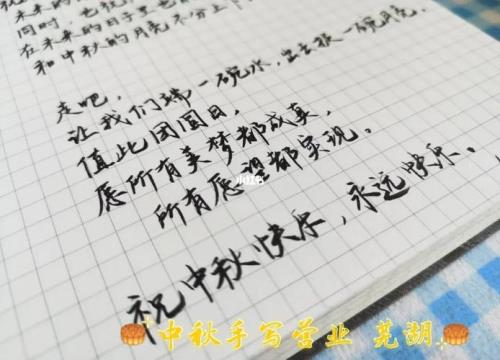 未来的
同时，也
在未来的日子里也
和中秋的月亮不分上下。
走吧，
让我们端一碗水，出去报一碗月亮。
值此团圆日，
愿所有美梦都成真，
所有愿望都实现。
小红书
祝中秋快乐，永远快乐。
中秋手写营业 芜湖